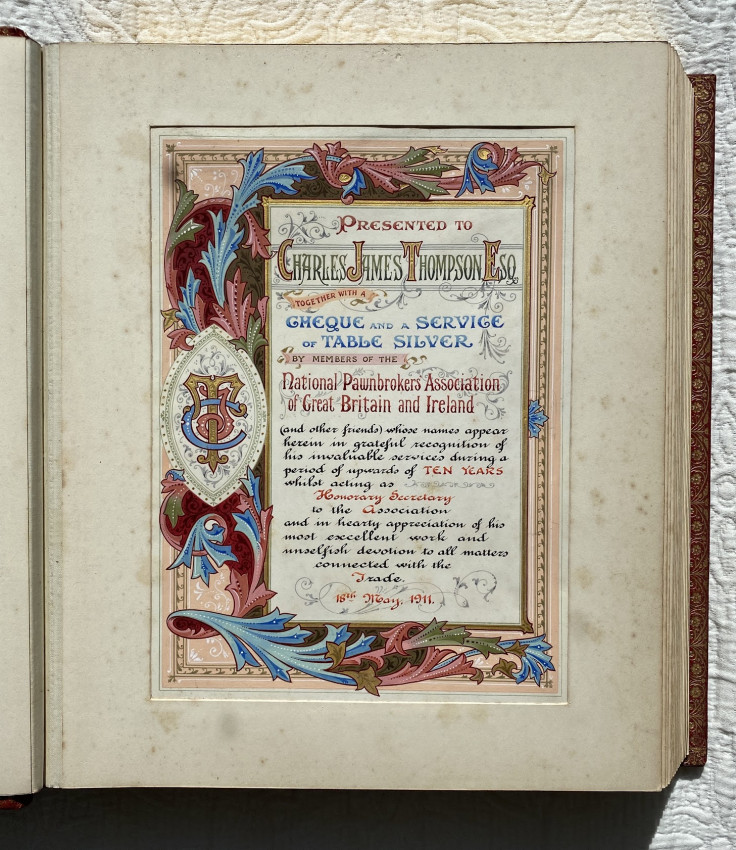 PRESENTED TO
CHARLES JAMES THOMPSON ESQ.
TOGETHER WITH A
CHEQUE AND A SERVICE
OF TABLE SILVER
BY MEMBERS OF THE
National Pawnbrokers Association
of Great Britain and Ireland
(and other friends) whose names appear
herein in grateful recognition of
his invaluable services during a
period of upwards of TEN YEARS
whilst acting as
Honorary Secretary
to the Association
and in hearty appreciation of his
most excellent work and
unselfish devotion to all matters
connected with the
Trade.
18th May, 1911.